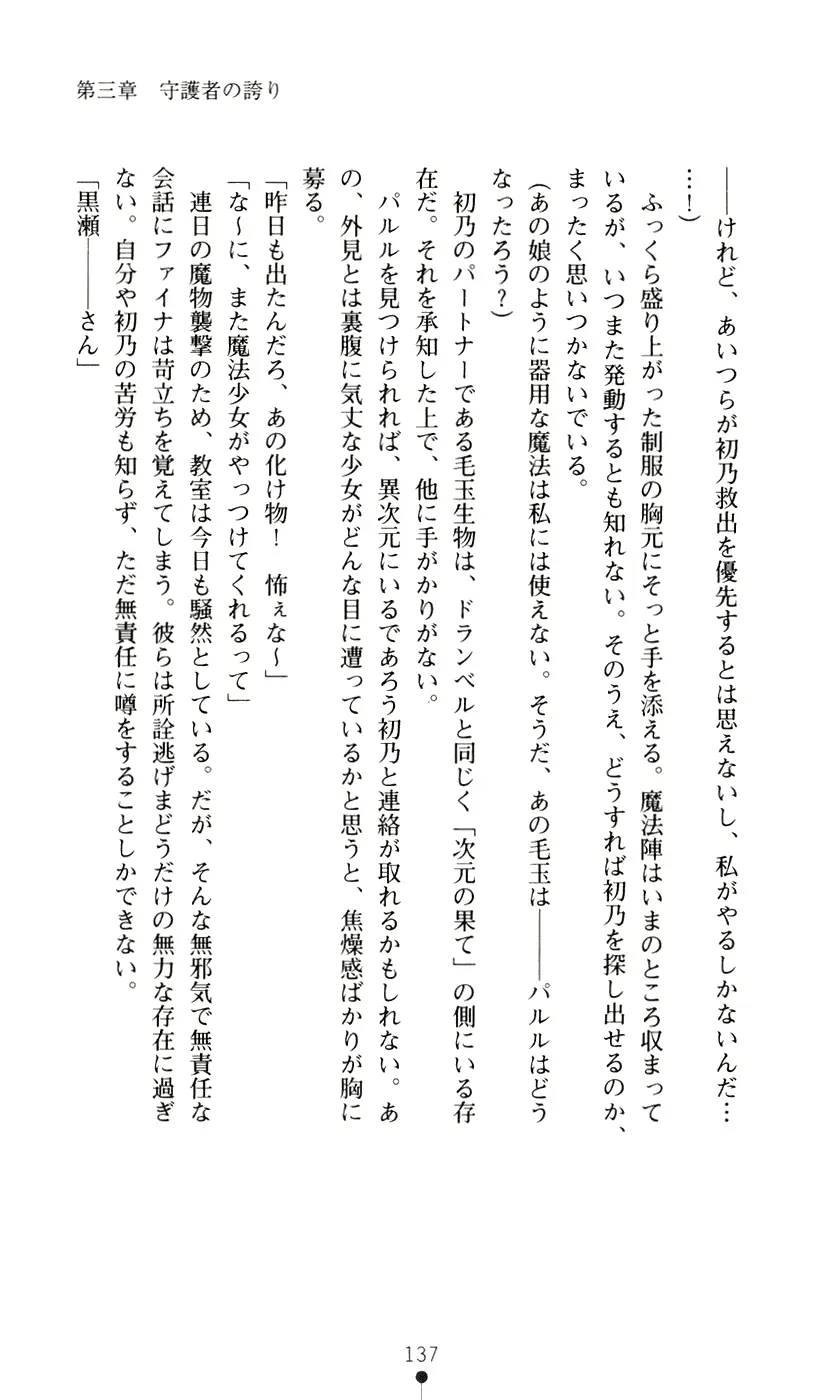 第三章　守護者の誇り
――けれど、あいつらが初乃救出を優先するとは思えないし、私がやるしかないんだ…
…！）
　ふっくら盛り上がった制服の胸元にそっと手を添える。魔法陣はいまのところ収まって
いるが、いつまた発動するとも知れない。そのうえ、どうすれば初乃を探し出せるのか、
まったく思いつかないでいる。
（あの娘のように器用な魔法は私には使えない。そうだ、あの毛玉は――パルルはどう
なったろう？）
　初乃のパートナーである毛玉生物は、ドランベルと同じく「次元の果て」の側にいる存
在だ。それを承知した上で、他に手がかりがない。
　パルルを見つけられれば、異次元にいるであろう初乃と連絡が取れるかもしれない。あ
の、外見とは裏腹に気丈な少女がどんな目に遭っているかと思うと、焦燥感ばかりが胸に
募る。
「昨日も出たんだろ、あの化け物！　怖ぇな～」
「な～に、また魔法少女がやっつけてくれるって」
　連日の魔物襲撃のため、教室は今日も騒然としている。だが、そんな無邪気で無責任な
会話にファイナは苛立ちを覚えてしまう。彼らは所詮逃げまどうだけの無力な存在に過ぎ
ない。自分や初乃の苦労も知らず、ただ無責任に噂をすることしかできない。
「黒瀬――さん」
137